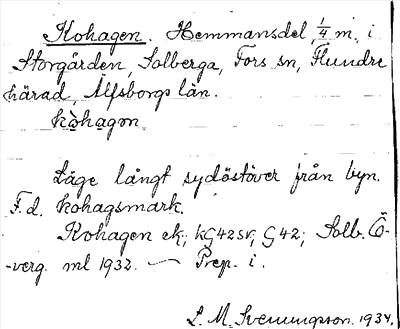 Kohagen. Hemmansdel, 1/4 m, i
Storgården, Solberga, Fors sn, Flundre
härad, Älfsborgs län.
kòhagon
Läge långt sydöstöver från byn.
F.d. kohagsmark.
Kohagen ek; kG42SV, G42; Solb. Ö-
-verg. ml 1932. — Prep. i.
L. M. Svenungsson. 1934.